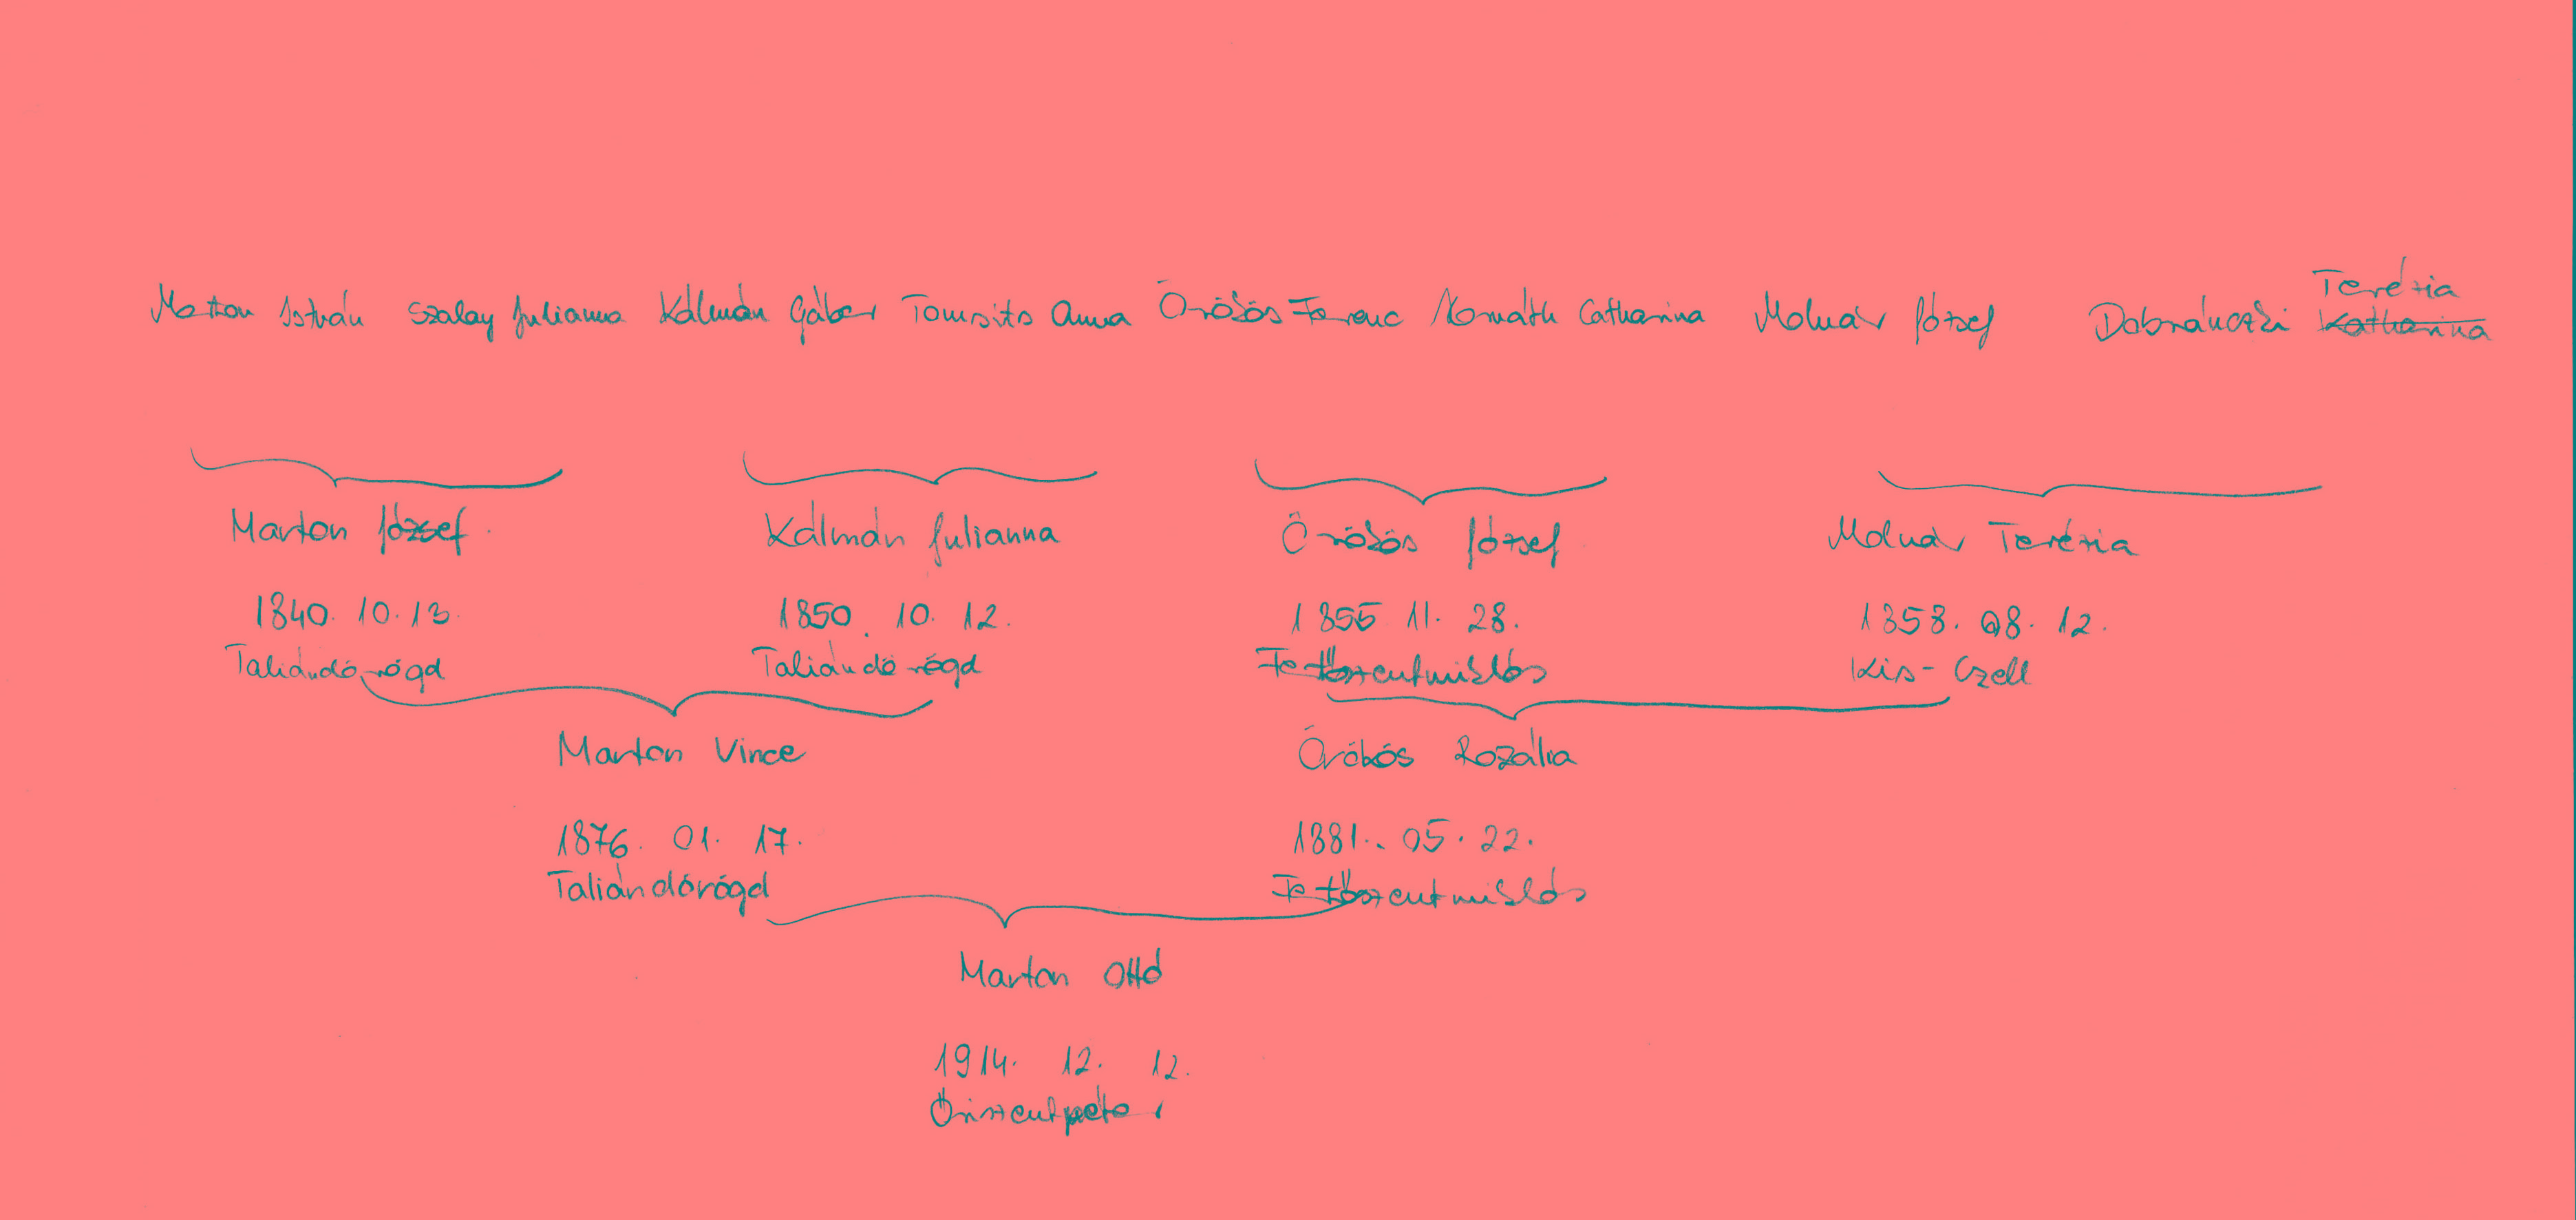 Terézia
Marton István Szalay Julianna Kálmán Gábor Tomsits Anna Örökös Ferenc Horváth Catharina Molnár József Dobránczki Katharina
Marton József Kálmán Julianna Örökös József Molnár Terézia
1840. 10. 13. 1850. 10. 12. 1855 11. 28. 1858. 08. 12.
Taliándörögd Taliándörögd Felsőszentmiklós Kis-Czell
Marton Vince Örökös Rozália
1876. 01. 17. 1881. 05. 22.
Taliándörögd Felsőszentmiklós
Marton Ottó
1914. 12. 12.
Öriszentpéter